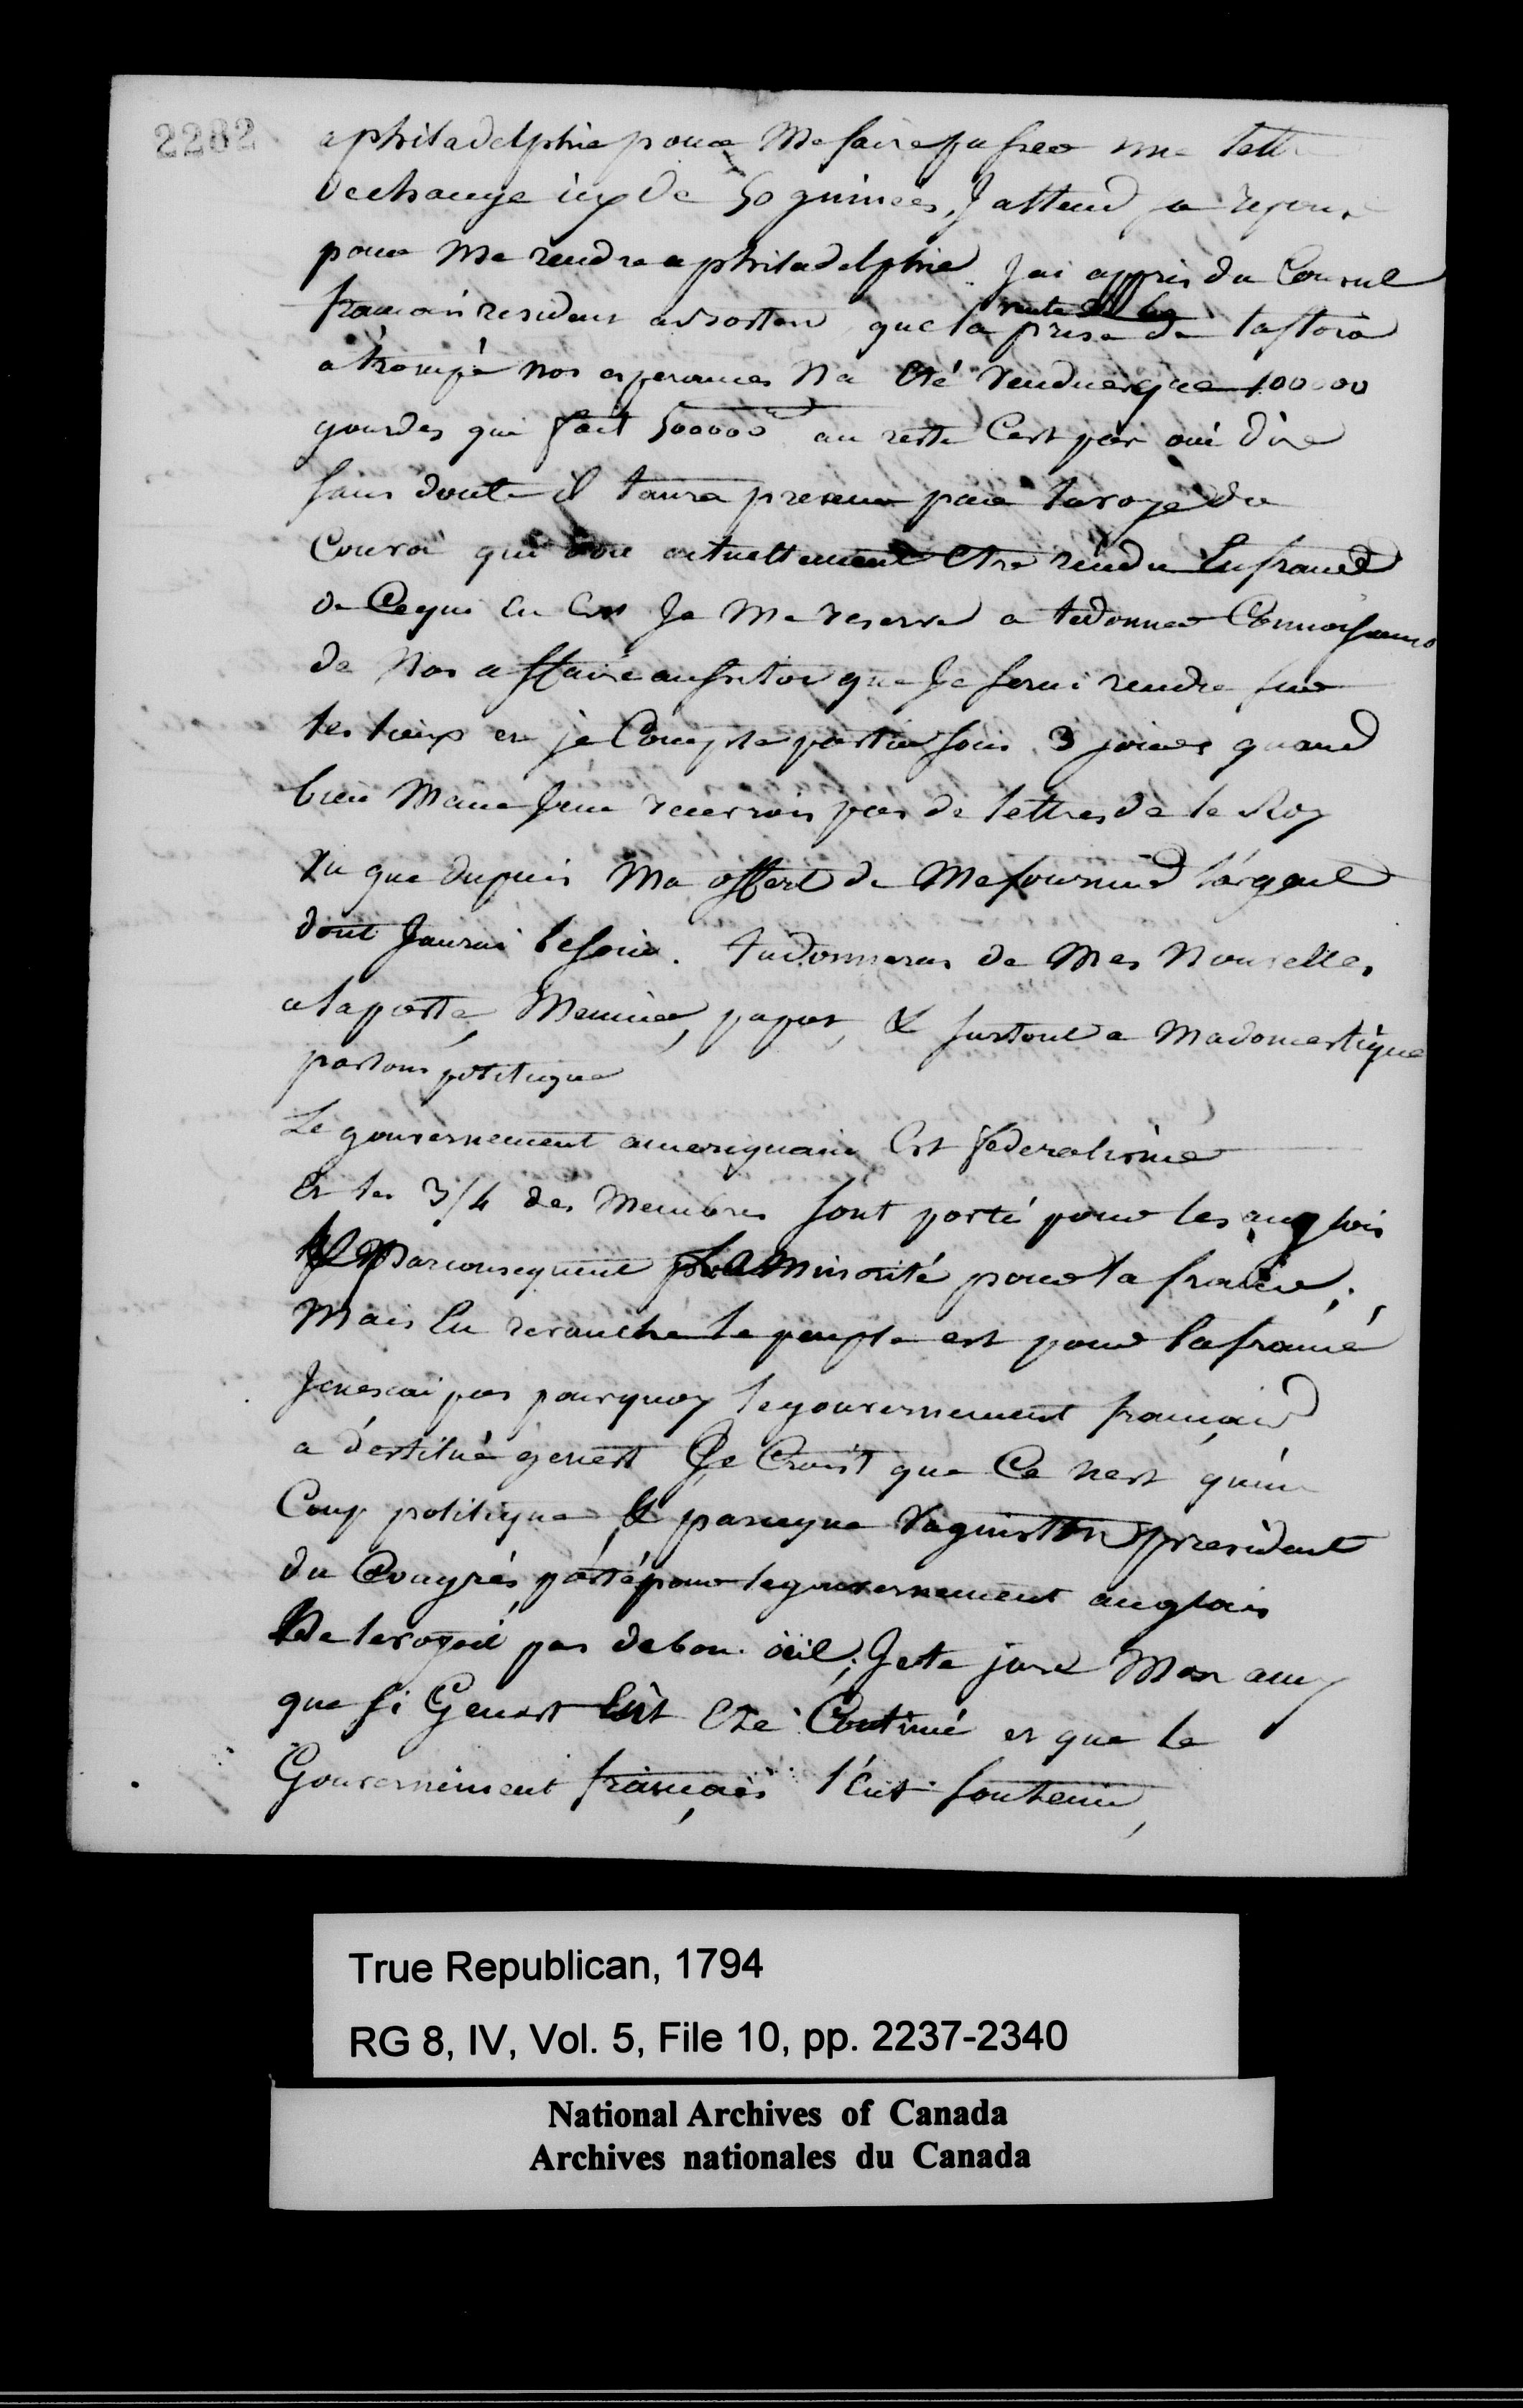 2282
a philadelphie pour me faire passer une lettre
dechange icy de 50 guinées, J attend sa reponse
pour me rendre a philadelphie. J ai appris du Consul
francais resident a boston que la prise de lastoia
vente de la
a trompé nos esperances Na Eté vendue que 100000
gourdes qui fait 500000 au reste Cest par oui dire
sans doute il taura prevenu par la voye du
Couroi qui doit actuellement Etre rendu En france
de Ce qui En Est Je me reserve a te donner Connoissance
de Nos affaire aussitot que Je serai rendu sur
les lieux et je Compte partir sous 3 jours quand
bien meme Je ne recevrois pas de lettres de le Roy
vu que dupuis ma offert de me fournir l'argent
dont J aurai besoin. tu donneras de mes Nouvelles
a laporte, Meunier, papot, & surtout a ma domestique
parlons politique
Le gouvernement ameriquain Est federalisme
Et les 3/4 des Membres sont porté pour les anglois
Par consequent la Minorité pour la france;
Mais En revanche le peuple est pour la france
Je ne scai pas pourquoy le gouvernement francais
a destitué genest Je Croist que Ce nest qu'un
Coup politique & parceque Vaguinston president
du Congrés porté pour le gouvernement anglais
Ne le voyoit pas de bon oeil; Je te jure Mon amy
que si Genest Eût Eté Continué et que le
Gouvernement français l'Eut soutenu,
True Republican, 1794
RG 8, IV, Vol. 5, File 10, pp. 2237-2340
National Archives of Canada
Archives nationales du Canada